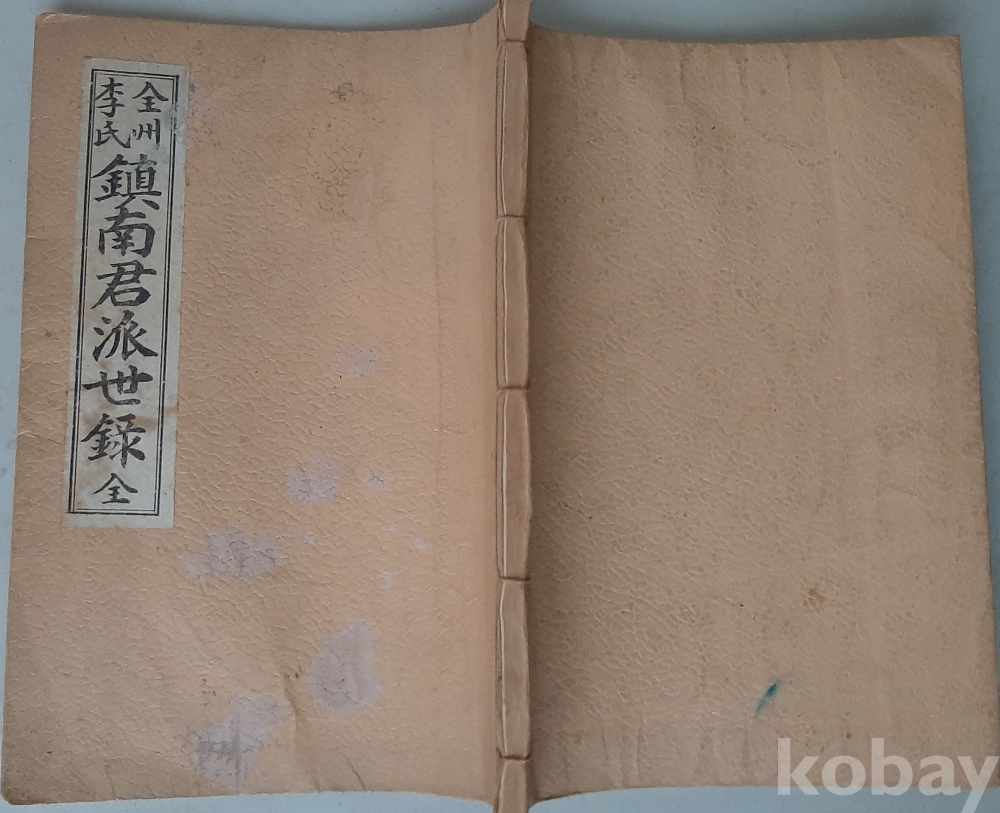 全州
李氏
鎮南君派世録全
kobay